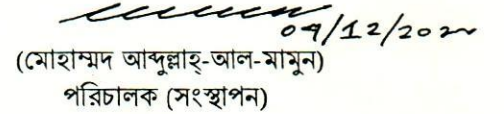 ০৭/12/2০২২
(মোহাম্মদ আব্দুল্লাহ্-আল-মামুন)
পরিচালক (সংস্থাপন)